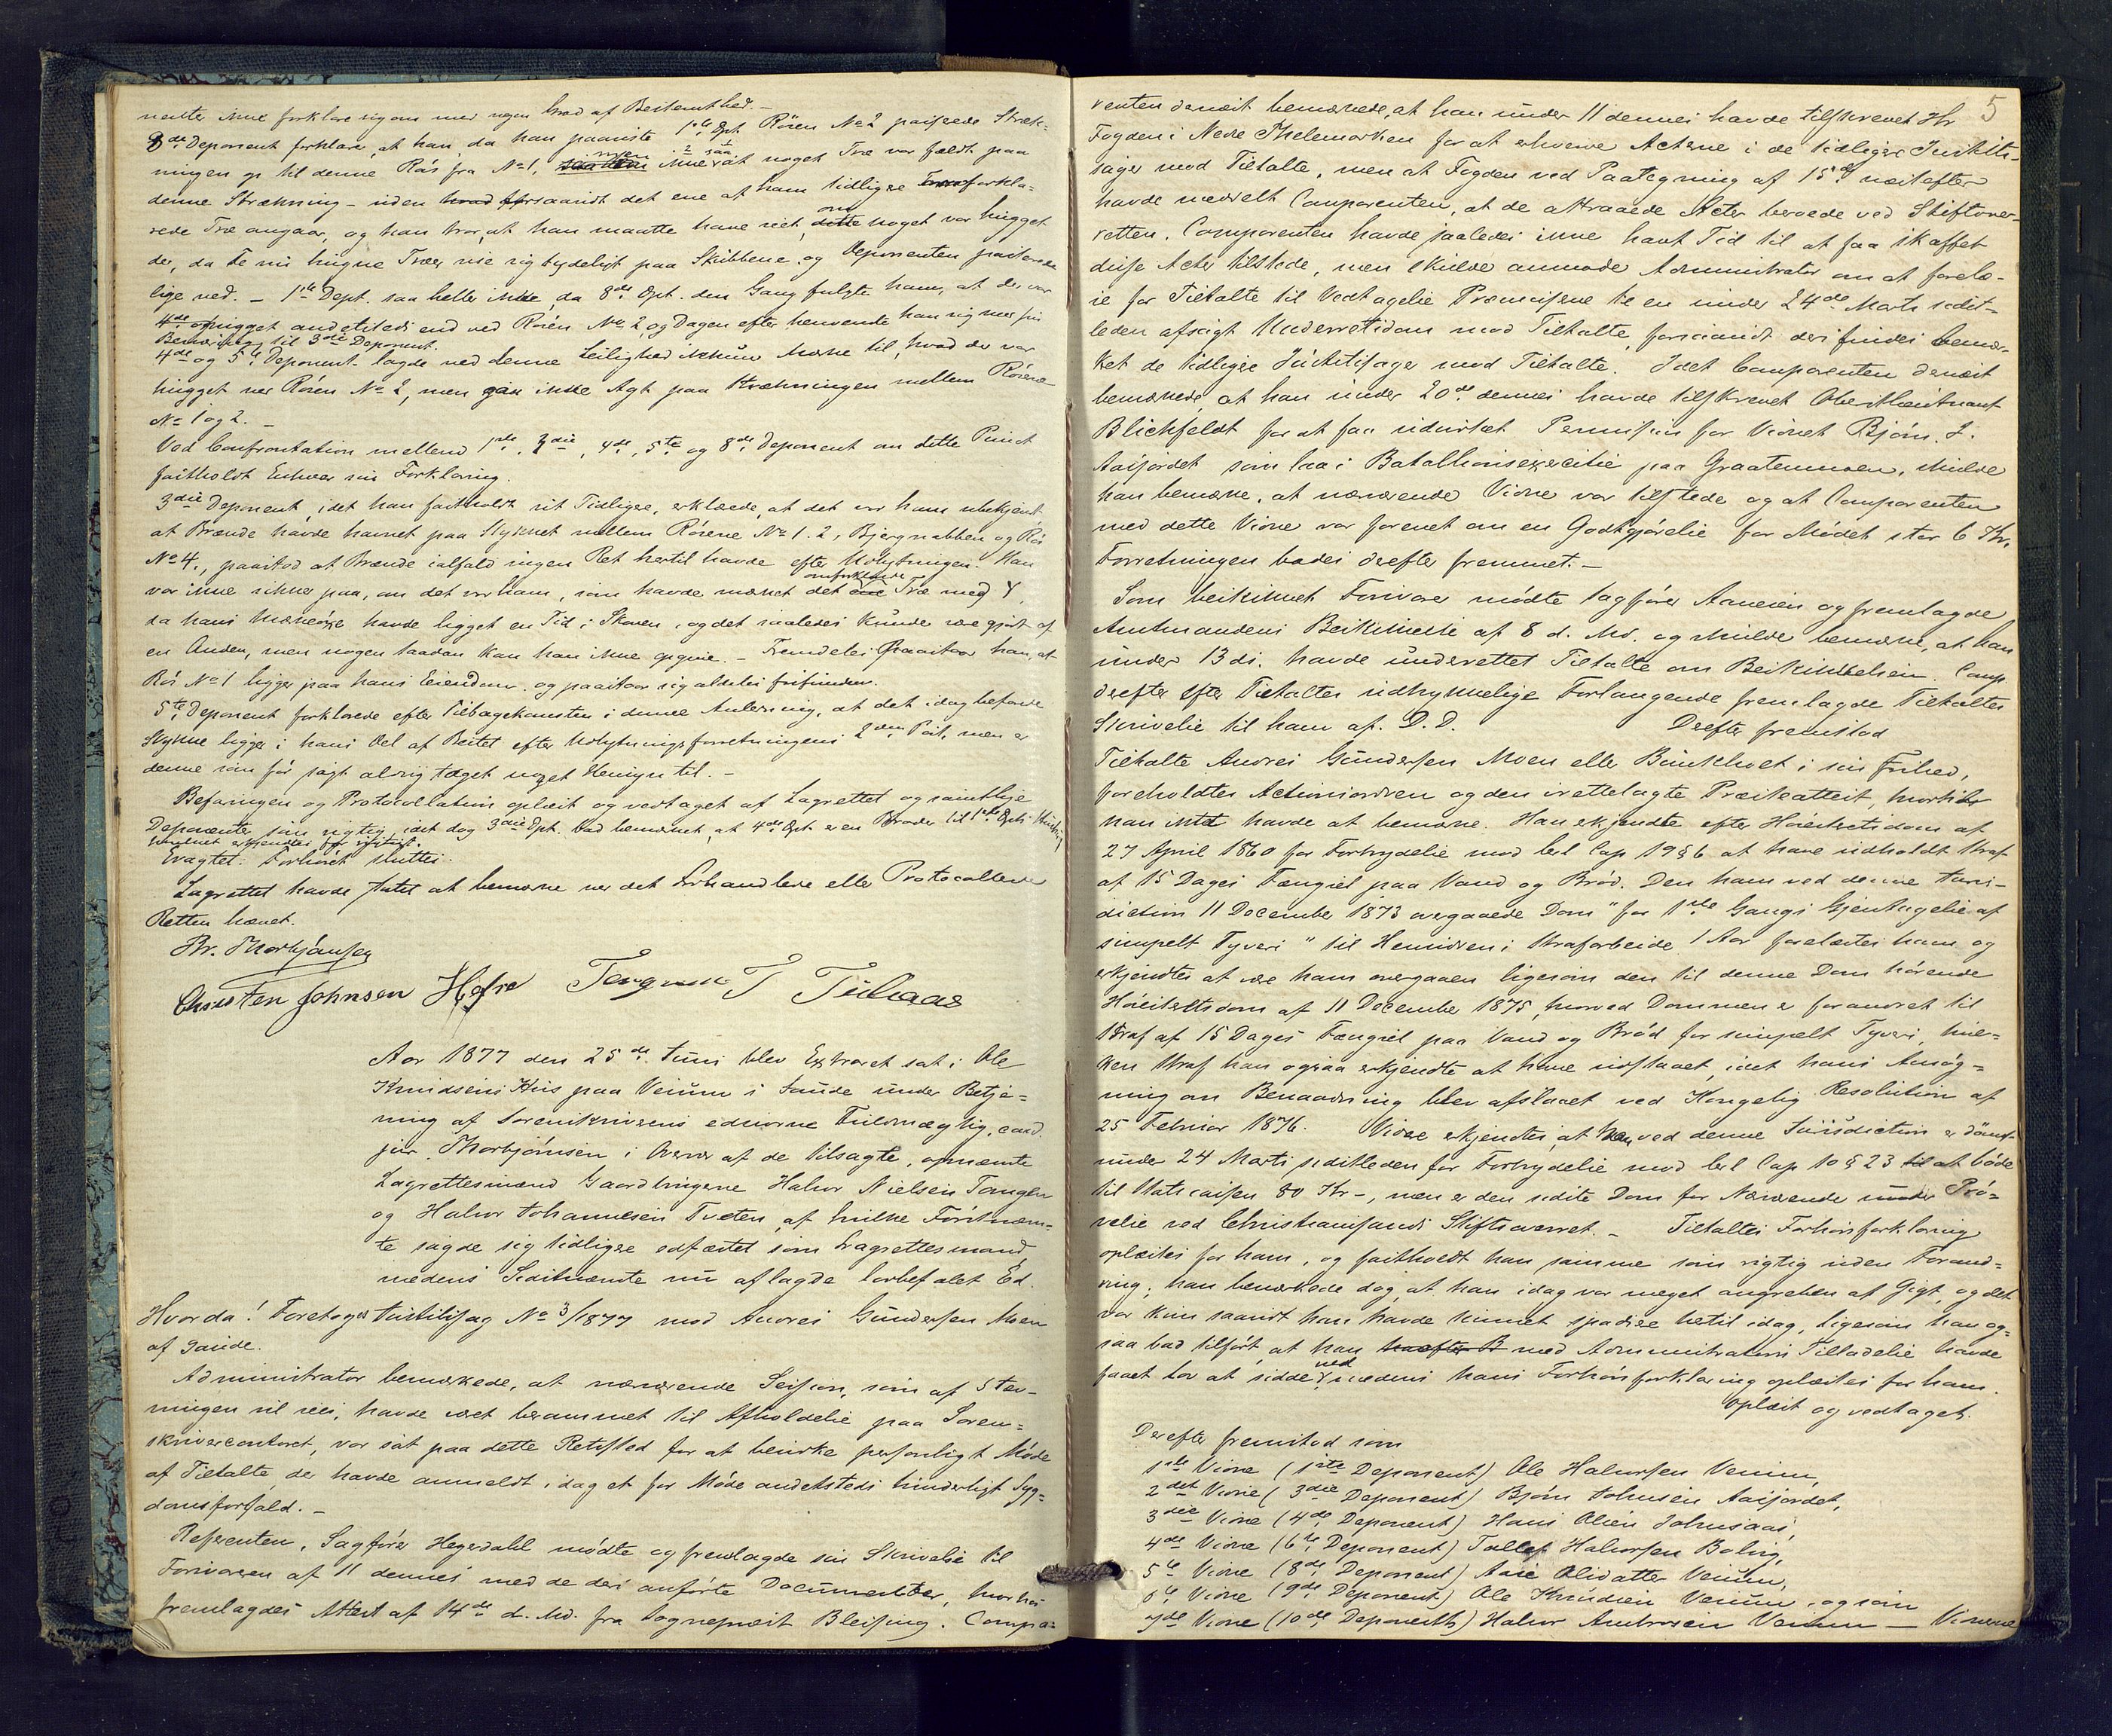 nenter ikke forklare sig om med nogen Grad af Bestemthed. –
8de Deponent forklarer, at han, da han paaviste 1ste Dpt. Røsen No 2 passerede Stræk-
ningen op til denne Røs fra No 1, men ikke saa at noget Træ var fældt paa
denne Strækning – uden forsaavidt det ene af ham tidligere forkla-
rede Træ angaar, og han tror, at han maatte have seet, om noget var hugget
der, da de nu hugne Træer vise sig tydeligt paa Stubbene og Deponenten passerede
lige ved. – 1ste Dept. saa heller ikke da 8de Dpt. den Gang fulgte ham, at der var
hugget andetsteds end ved Røsen No 2, og Dagen efter henvendte han sig med sin
Bemærkning til 3die Deponent.
4de og 5te Deponent lagde ved denne Leilighed ikkun Mærke til, hvad der var
hugget ved Røsen No 2, men gav ikke Agt paa Strækningen mellem Røsene
No 1 og 2. –
Ved Confrontation mellem 1ste, 3die, 4de, 5te og 8de Deponent om dette Punct
fastholdt Enhver sin Forklaring.
3die Deponent, idet han fastholdt sit Tidligere, erklærede, at det var ham ubekjendt
at Brænde havde havnet paa Stykket mellem Røsene No 1. 2, Bjergnabben og Røs
No 4., paastod at Brænde ialfald ingen Ret hertil havde efter Udskytningen. Han
var ikke sikker paa, om det var ham, som havde mærket det omforklarede Træ med Y,
da hans Mærkeøxe havde ligget en Tid i Skoven, og det saaledes kunde være gjort af
en Anden, men nogen saadan kan han ikke opgive. – Fremdeles paastaar han, at
Røs No 1 ligger paa hans Eiendom og paastaar sig aldeles frifunden.
5te Deponent forklarede efter Tilbagekomsten i denne Anledning, at det idag befarede
Stykke ligger i hans Del af Beitet efter Udskytningsforretningens 2den Post, men er
denne som før sagt aldrig taget noget Hensyn til. –
Befaringen og Protocollation oplæst og vedtaget af Lagrettet og samtlige
Deponenter som rigtig, idet dog 3die Dpt. bad bemærket, at 4de Dpt. er en Broder til 1ste Dpts
erkjendtes for rigtigt.
Evagtet. Forhøret sluttes.
Lagrettet havde Intet at bemærke ved det Forhandlede eller Protocollerede
Retten hævet.
Br. Thorbjønsen
Christen Johnsen Hofre Tergus T
Aar 1877 den 25de Juni blev Extraret sat i Ole
Knudsens Hus paa Venum i Saude under Betje-
ning af Sorenskriverens edsvorne Fuldmægtig, cand.
jur. Thorbjørnsen i Overvær af de tilsagte, opnævnte
Lagrettesmænd Gaardbrugerne Halvor Nielsen Tangen
og Halvor Johannesen Tveten, af hvilke Førstnævn-
te sagde sig tidligere edfæstet som Lagrettesmand,
medens Sidstnævnte nu aflagde lovbefalet Ed.
Hvorda! Foretoges Justitssag No 3/1877 mod Andres Gundersen Moen
af Saude.
Administrator bemærkede, at nærværende Session, som af Stev-
ningen vil sees, havde været berammet til Afholdelse paa Soren-
skrivercontoret, var sat paa dette Retssted for at bevirke personligt Møde
af Tiltalte, der havde anmeldt, idag et for Møde andetsteds hinderligt Syg-
domsforfald. –
Referenten, Sagfører Hegerdahl mødte og fremlagde sin Skrivelse til
Forsvareren af 11 dennes med de deri anførte Documenter, hvorhos
fremlagdes Attest af 14de d. Md. fra Sogneprest Blessing. Compa-
5
renten dernæst bemærkede, at han under 11 dennes havde tilskrevet Hr
Fogden i Nedre Thelemarken for at erhverve Acterne i de tidligere Justits-
sager mod Tiltalte, men at Fogden ved Paategning af 15de næstefter
havde meddelt Comparenten, at de attraaede Acter beroede ved Stiftsover-
retten. Comparenten havde saaledes ikke havt Tid til at faa skaffet
disse Acter tilstede, men skulde anmode Administrator om at forelæ-
se for Tiltalte til Vedtagelse Præmisserne til en under 24de Marts sidst-
leden afsagt Underretsdom mod Tiltalte, forsaavidt deri findes bemær-
ket de tidligere Justitssager mod Tiltalte. Idet Comparenten dernæst
bemærkede, at han under 20de dennes havde tilskrevet Oberstlieutnant
Blichfeldt for at faa udvirket Permission for Vidnet Bjørn J.
Aasjordet som laa i Bataillonsexercitie paa Graatenmoen, skulde
han bemærke, at nærværende Vidne var tilstede og at Comparenten
med dette Vidne var forenet om en Godtgjørelse for Mødet stor 6 Kr.
Forretningen bades derefter fremmet. –
Som beskikket Forsvarer mødte Sagfører Aanesen og fremlagde
Amtmandens Beskikkelse af 8 d. Md. og skulde bemærke, at han
under 13 ds. havde underrettet Tiltalte om Beskikkelsen. Comp.
derefter efter Tiltaltes udtrykkelige Forlangende fremlagde Tiltaltes
Skrivelse til ham af D. D. Derefter fremstod
Tiltalte Andres Gundersen Moen eller Bunkholt i sin Frihed,
foreholdtes Actionsordren og den irettelagte Præsteattest, hvortil
han intet havde at bemærke. Han erkjendte efter Høiesteretsdom af
27 April 1860 for Forbrydelse mod l l Cap 19 § 6 at have udholdt Straf
af 15 Dages Fængsel paa Vand og Brød. Den ham ved denne Juris-
diction 11 December 1873 overgaaede Dom "for 1ste Gangs Gjentagelse af
simpelt Tyveri" til Hensidden i Strafarbeide 1 Aar forelæstes ham og
erkjendtes at være ham overgaaen ligesom den til denne Dom hørende
Høiesteretsdom af 11 December 1875, hvorved Dommen er forandret til
Straf af 15 Dages Fængsel paa Vand og Brød for simpelt Tyveri, hvil-
ken Straf han ogsaa erkjendte at have udstaaet, idet hans Ansøg-
ning om Benaadning blev afslaaet ved Kongelig Resolution af
25 Februar 1876. Videre erkjendtes, at han ved denne Jurisdiction er dømt
under 24 Marts sidstleden for Forbrydelse mod l l Cap 10 § 23 til at bøde
til Statscassen 80 Kr –, men er den sidste Dom for Nærværende under Prø-
velse ved Christianssands Stiftsoverret. – Tiltaltes Forhørsforklaring
oplæstes for ham, og fastholdt han samme som rigtig uden Forand-
ring; han bemærkede dog, at han idag var meget angreben af Gigt, og det
var kun saavidt han havde kunnet spadsere hertil idag, ligesom han og-
saa bad tilført, at han med Administrators Tilladelse havde
faaet Lov at sidde ned medens hans Forhørsforklaring oplæstes for ham.
Oplæst og vedtaget.
Derefter fremstod som
1ste Vidne (1ste Deponent) Ole Halvorsen Venum,
2det Vidne (3die Deponent) Bjørn Johnsen Aasjordet,
3die Vidne (4de Deponent) Hans Olsen Johnsaas,
4de Vidne (6te Deponent) Tallef Halvorsen Bolvig,
5te Vidne (8de Deponent) Aase Olsdatter Venum,
6te Vidne (9de Deponent) Ole Knudsen Venum, og som
7de Vidne (10de Deponent) Halvor Ambrosen Venum – Vidnerne